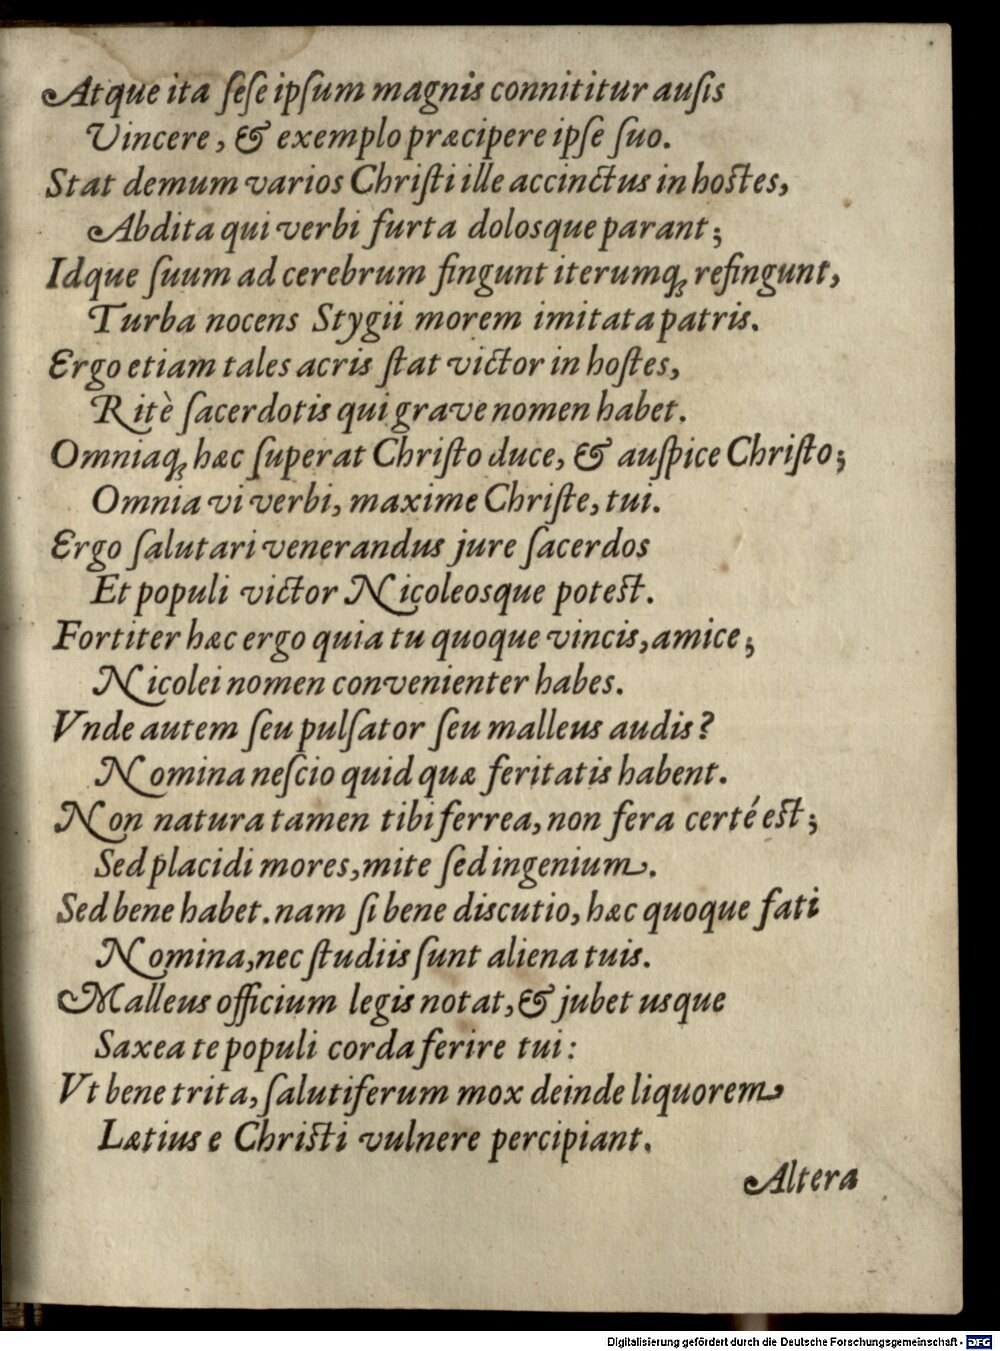 Atque ita ſeſe ipſum magnis connititur auſis
Vincere, & exemplo præcipere ipſe ſuo.
Stat demum varios Chriſti ille accinctus in hoſtes,
Abdita qui verbi furta dolosque parant;
Idque ſuum ad cerebrum fingunt iterumq; refingunt,
Turba nocens Stygii morem imitata patris.
Ergo etiam tales acris ſtat victor in hoſtes,
Ritè ſacerdotis qui grave nomen habet.
Omniaq; hæc ſuperat Chriſto duce, & auſpice Chriſto;
Omnia vi verbi, maxime Chriſte, tui.
Ergo ſalutari venerandus jure ſacerdos
Et populi victor Nicoleosque poteſt.
Fortiter hæc ergo quia tu quoque vincis, amice;
Nicolei nomen convenienter habes.
Vnde autem ſeu pulſator ſeu malleus audis?
Nomina neſcio quid quæ feritatis habent.
Non natura tamen tibi ferrea, non fera certé eſt;
Sed placidi mores, mite ſed ingenium.
Sed bene habet. nam ſi bene discutio, hæc quoque fati
Nomina, nec ſtudiis ſunt aliena tuis.
Malleus officium legis notat, & jubet usque
Saxea te populi corda ferire tui:
Vt bene trita, ſalutiferum mox deinde liquorem
Lætius e Chriſti vulnere percipiant.
Altera
Digitalisierung gefördert durch die Deutsche Forschungsgemeinschaft - DFG